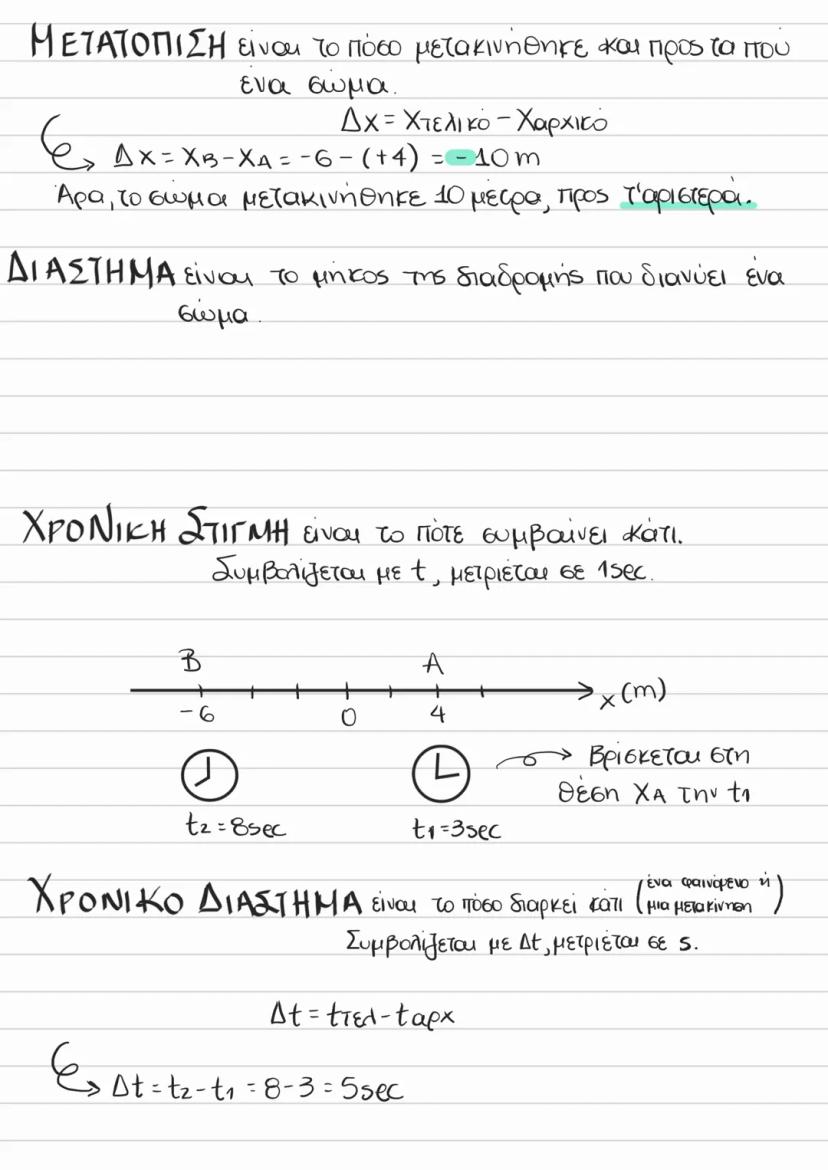 ΜΕΤΑΤΟΠΙΣΗ είναι το πόσο μετακινήθηκε και προς τα που
ένα σώμα.
Δx = Xτελικό - Xαρχικό
Δx = xB - xA = -6 - (+4) = -10 m
Άρα, το σώμα μετακινήθηκε 10 μέτρα, προς τ'αριστερά.
ΔΙΑΣΤΗΜΑ είναι το μήκος της διαδρομής που διανύει ένα
σώμα.
ΧΡΟΝΙΚΗ ΣΤΙΓΜΗ είναι το πότε συμβαίνει κάτι.
Συμβολίζεται με t, μετριέται σε 1sec.
B A
-6 0 4 x (m)
Βρίσκεται στη
θέση XA την t1
t2 = 8sec t1 = 3sec
ΧΡΟΝΙΚΟ ΔΙΑΣΤΗΜΑ είναι το πόσο διαρκεί κάτι (ένα φαινόμενο ή
μια μετακίνηση)
Συμβολίζεται με Δt, μετριέται σε s.
Δt = tτελ - tαρχ
Δt = t2 - t1 = 8 - 3 = 5sec